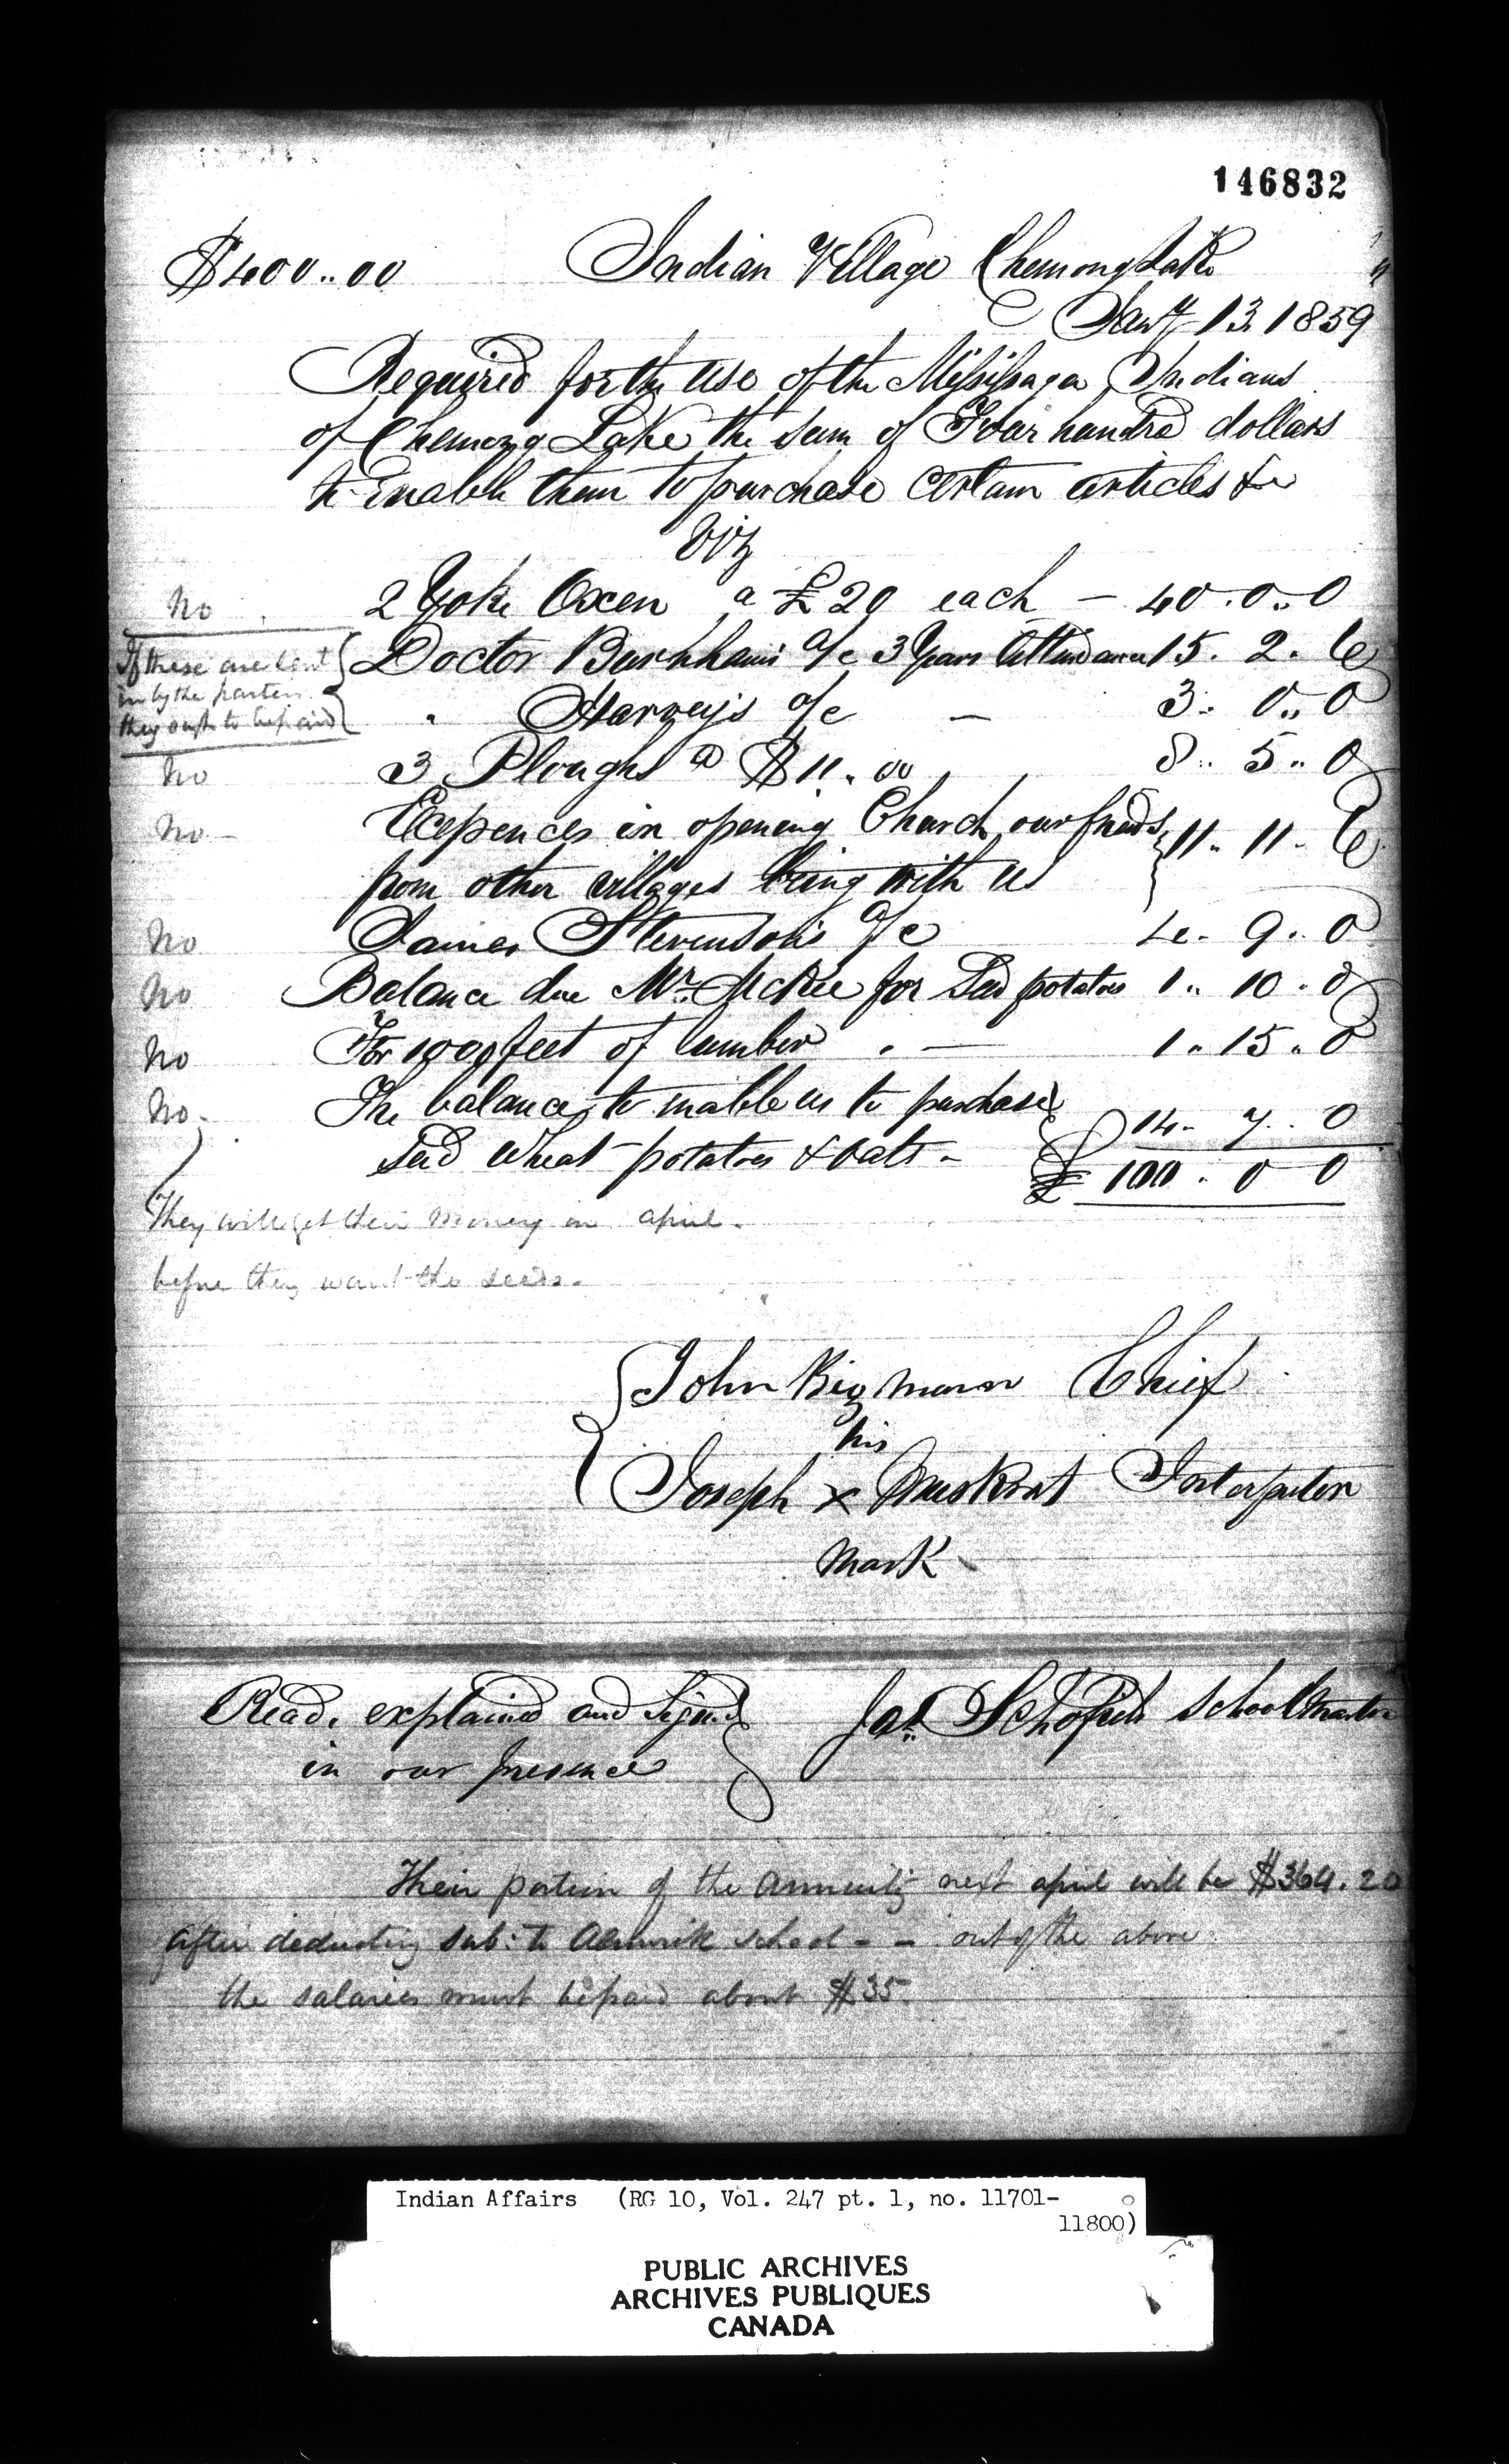 146832
$400..00 Indian Village Chemong Lake
Jany 13. 1859
Required for the use of the Missisaga Indians
of Chemong Lake the sum of Four hundred dollars
to Enable them to purchase certain articles &c
Viz
No 2 Yoke Oxen a £20 each — 40..0..0
If these are sent Doctor Burnham's a/c 3 Years Attendance 15. 2. 6
in by the parties
they ought to be paid " Harvey's a/c — 3. 0.. 0
No 3 Ploughs @ $11..00 8.. 5.. 0
No - Expences in opening Church our frieds 11.. 11. 6
from other villages being with us
No James Stevenson's a/c 4. 9.. 0
No Balance due Mr. McKee for Seed potatoes 1.. 10. 0
No For 1000 feet of lumber . — 1.. 15.. 0
No. The balance to enable us to purchase
Seed Wheat potatoes & oats - 14. 7.. 0
£ 100. 0 0
They will get their money in april.
before they want the seeds.
John Bigman Chief
his
Joseph x Muskrat Interpeter
mark
Read, explained and Signed Jas. Schofield School Master
in our presence
Their portion of the annuity next april will be $364.20
after deducting sub: to Alnwick school - - out of the above
the salaries must be paid about $35
Indian Affairs (RG 10, Vol. 247 pt. 1, no. 11701-
11800)
PUBLIC ARCHIVES
ARCHIVES PUBLIQUES
CANADA